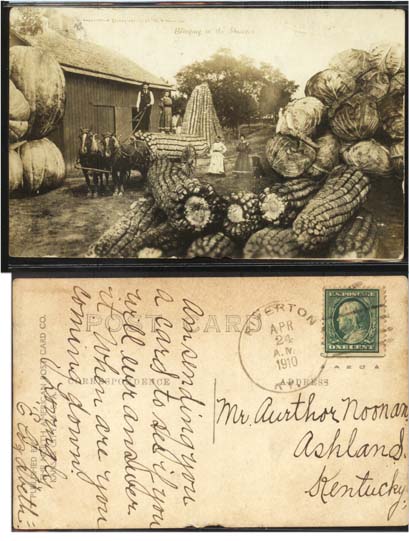 Bringing in the Sheaves
POST CARD
CORRESPONDENCE
ADDRESS
RIVERTON
APR
24
A.M.
1910
KY.
U.S. POSTAGE
ONE CENT
Am sending you
a card to see if you
will ever answer
it. When are you
coming down?
Elizabeth.
Mr. Aurthor Noonan,
Ashland.
Kentucky.
POST CARD CO.